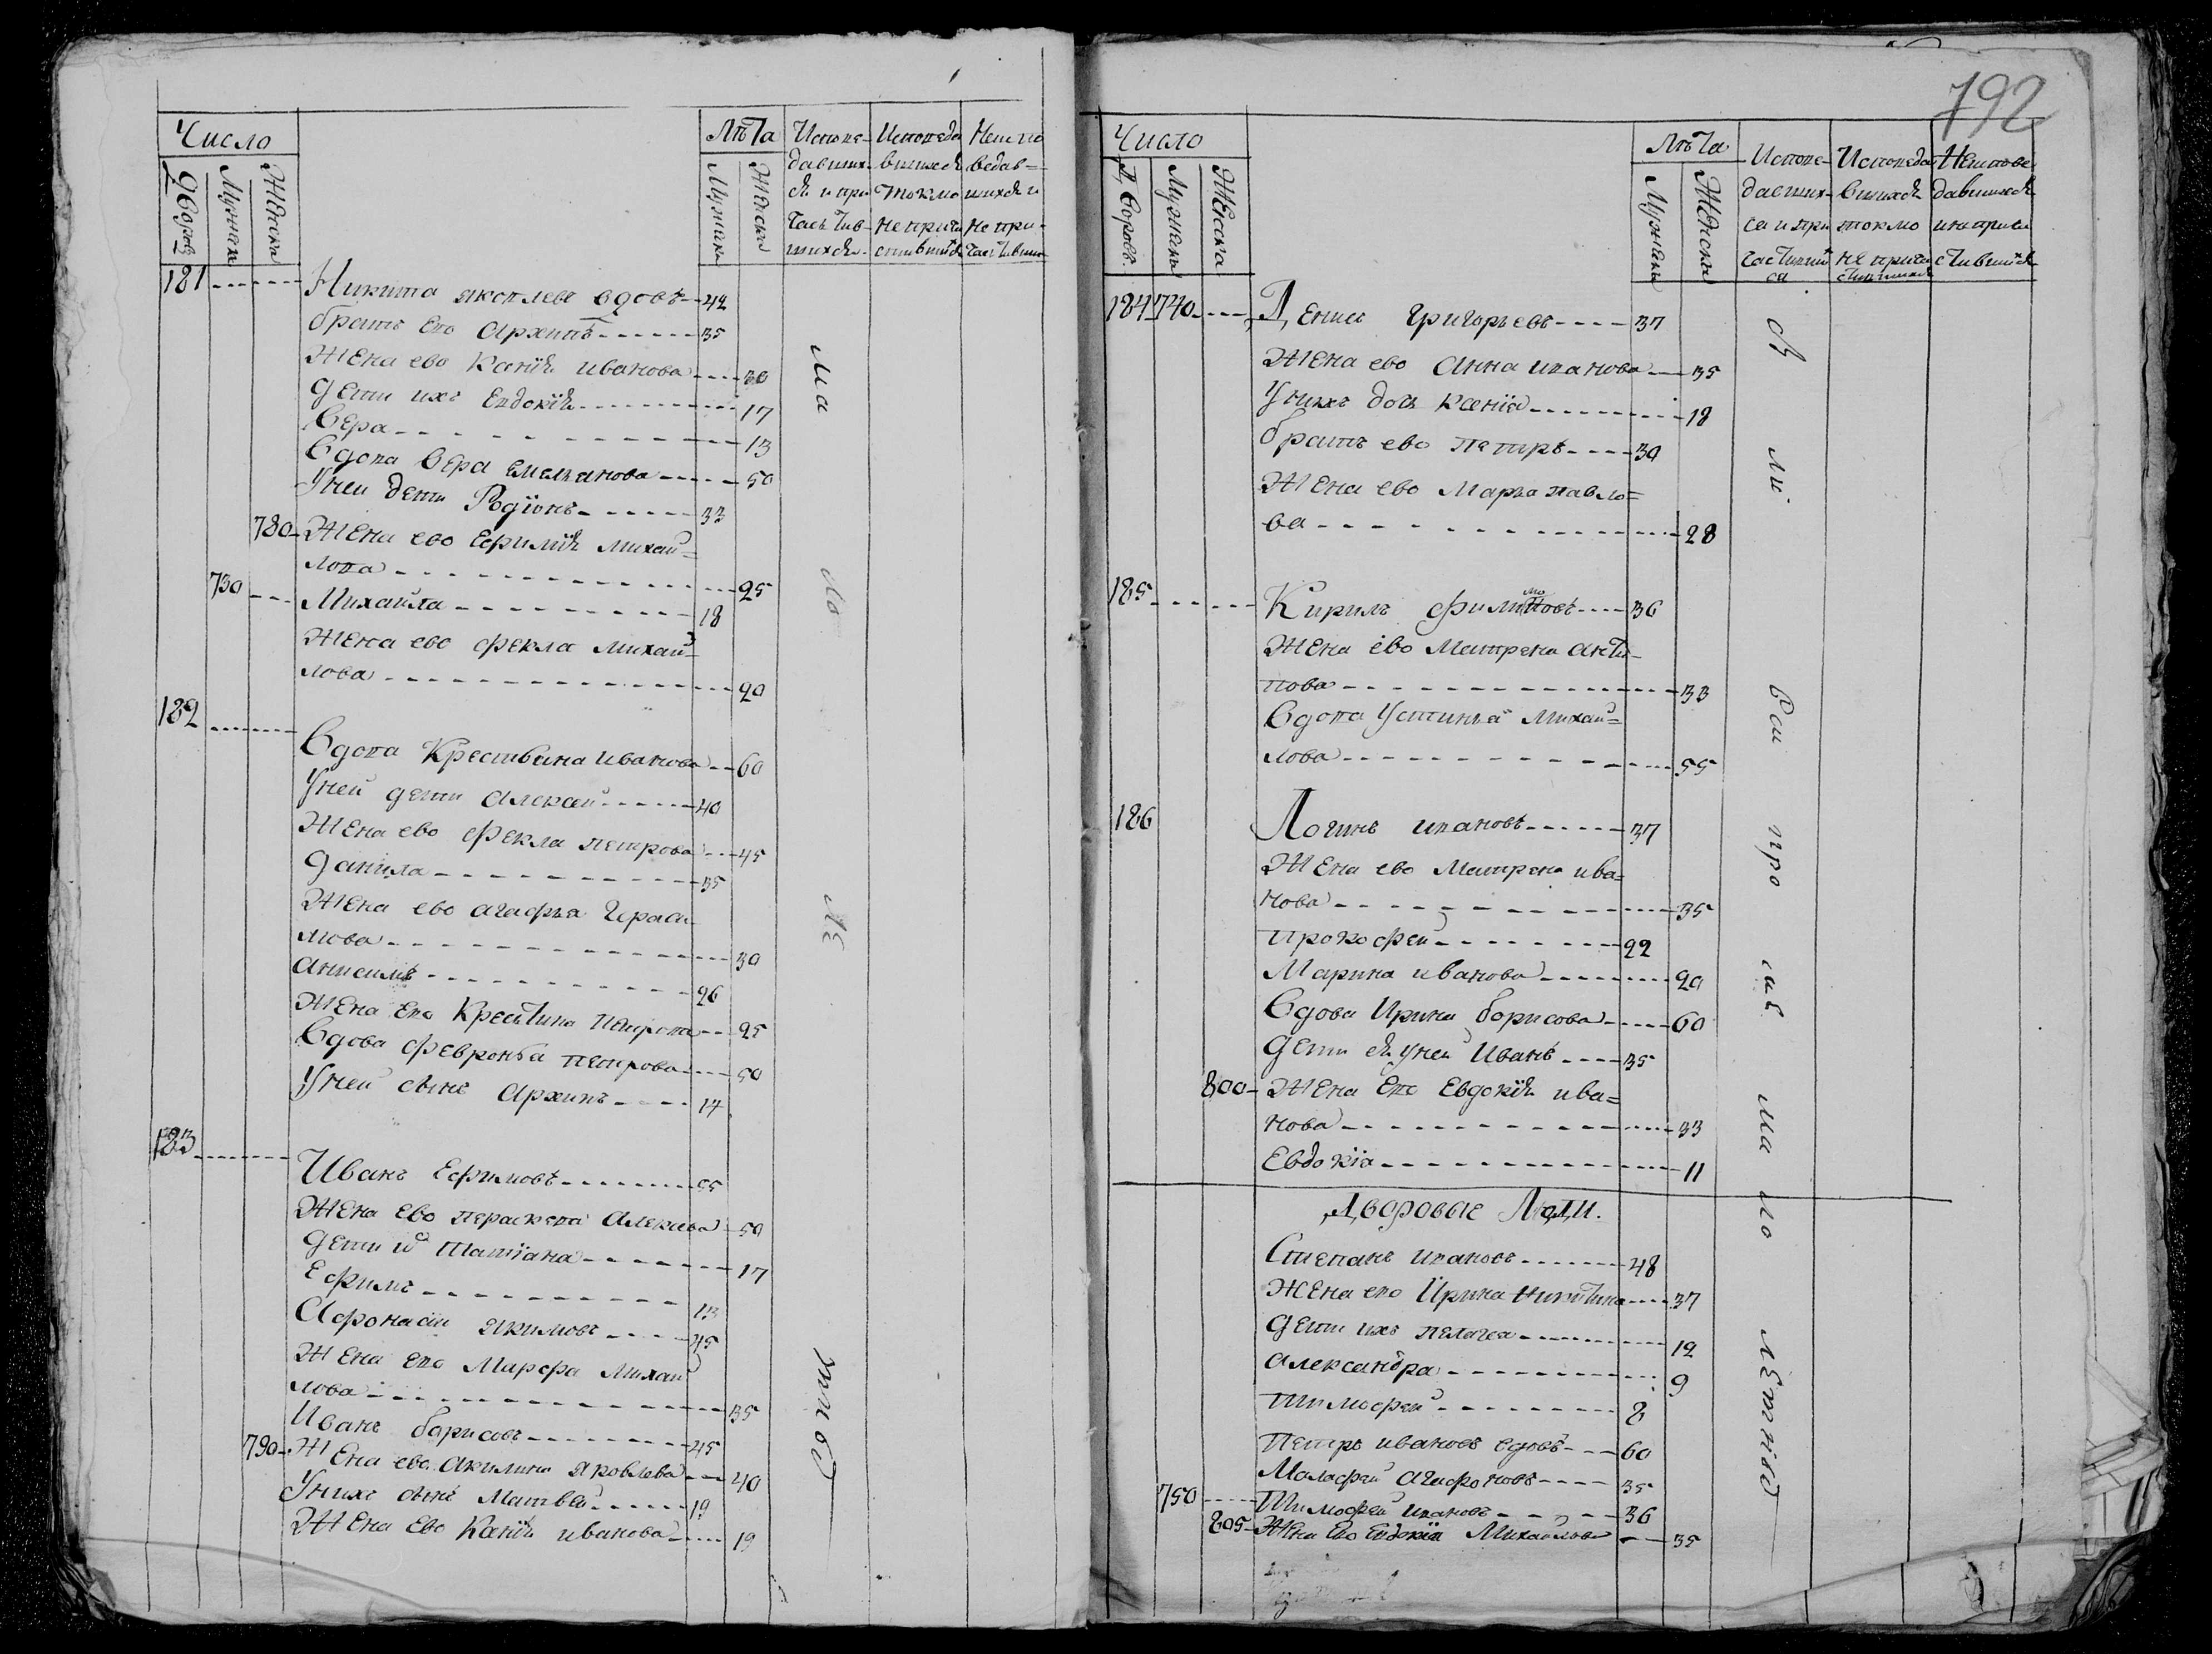 Число
Дворовъ
Мужеска
Женска
Лѣта
Мужеска
Женска
Исповедавшихся и причастившихся
Исповедавшихся токмо не причастившихся
Неисповедавшихся и не причастившихся
181 Никита яковлевъ вдовъ 42
братъ ево архипъ 35
Жена ево Ксенiя иванова 30
дети ихъ Евдокiя 17
Вера 13
Вдова Вера емельянова 50
У неи дети Родiонъ 33
780 Жена ево Ефимiя михаи=
лова 25
730 Михаила 18
Жена ево фекла михаи=
лова 20
182
Вдова Крестьвина иванова 60
У ней дети алексей 40
Жена ево фекла петрова 45
данила 35
Жена ево агафья гераси
мова 30
анисимъ 26
Жена ево Крестина петрова 25
Вдова февронья петрова 50
У ней сынъ архипъ 17
183
Иванъ Ефимовъ 55
Жена ево параскева алексева 50
дети ихъ татiана 17
Ефимъ 13
Афонасiй якимовъ 45
Жена ево Марфа михаи
лова 35
Иванъ борисовъ 45
790 Жена ево акилина яковлева 40
У нихъ сынъ матвей 19
Жена ево Ксенiя иванова 19
ма ло лѣ тнiѣ
792
Число
Дворовъ.
Мужеска
Женска
Лѣта
Мужеска
Женска
Исповедавшихся и причастившихся
Исповедавшихся токмо не причастившихся
Неисповедавшихся и не причастившихся
184 740 Денисъ григорьевъ 37
Жена ево анна иванова 35
У нихъ дочь ксенiя 18
братъ ево петръ 30
Жена ево Марья павло=
ва 28
185 Кирилъ филимоновъ 36
Жена ево Матрена анти
пова 33
Вдова Устинья михаи=
лова 55
186 Логинъ ивановъ 37
Жена ево Матрена ива=
нова 35
Прокофей 22
Марина иванова 20
Вдова Ирина борисова 60
дети у ней Иванъ 35
800 Жена ево Евдокiя ива=
нова 33
Евдокiа 11
Дворовые Люди.
Степанъ ивановъ 48
Жена ево Ирина никитина 37
дети ихъ пелагея 12
александра 9
тимофей 8
Петръ ивановъ вдовъ 60
Малафей агафоновъ 35
750 Тимофей ивановъ 36
805 Жена ево Евдокiя михаилова 35